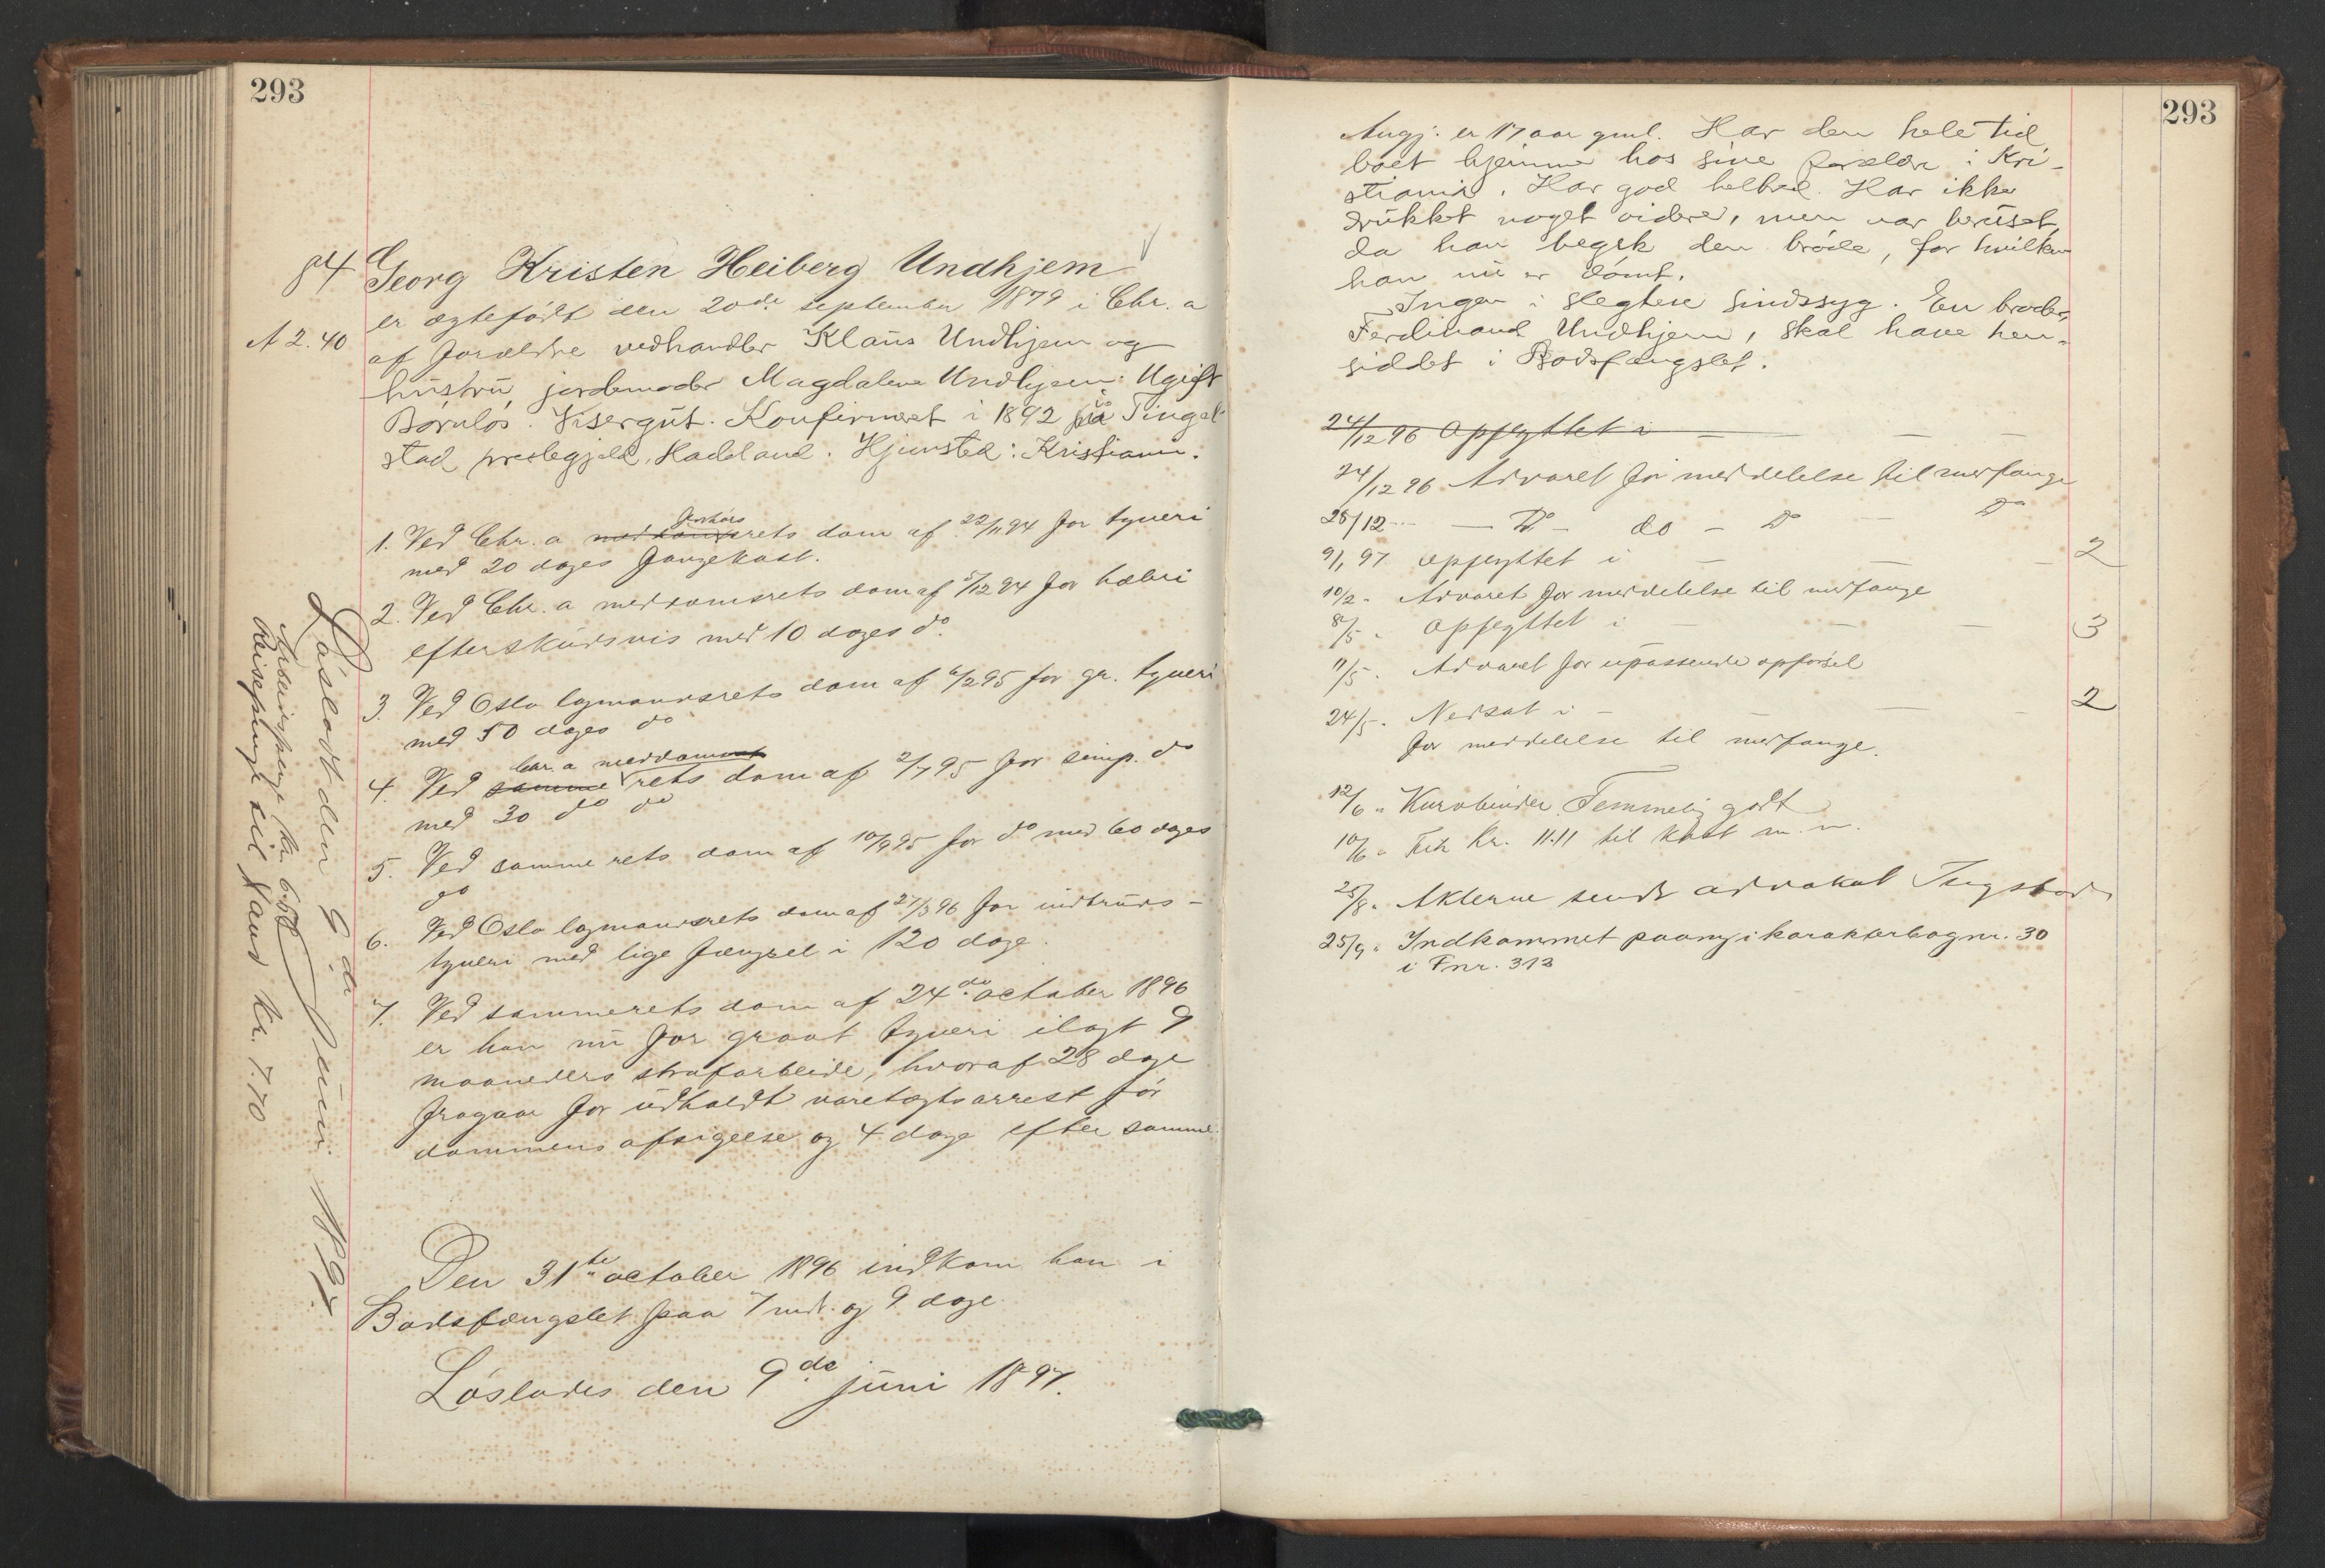 293
84 Georg Kristen Heiberg Undhjem
er ægtefødt den 20de september 1879 i Chr.a
A 2.40
af forældre vedhandler Klaus Undhjem og
hustru, jordemoder Magdalene Undhjem. Ugift
Børnløs. Visergut. Konfirmeret i 1892 i Tingel-
stad prestegjeld, Hadeland. Hjemsted: Kristiania.
1. Ved Chr.a meddomsrets forhørs dom af 22/11 94 for tyveri
med 20 dages fangekost.
2. Ved Chr.a meddomsrets dom af 5/12 94 for hæleri
efterskudsvis med 10 dages do.
3. Ved Oslo lagmandsrets dom af 6/2 95 for gr. tyveri
med 50 dages do
4. Ved samme Chr.a meddomsrets dom af 2/7 95 for simp. do
med 30 do do
5. Ved samme rets dom af 10/9 95 for do med 60 dages
do
6. Ved Oslo lagmandsrets dom af 27/3 96 for indbruds-
tyveri med lige fængsel i 120 dage.
7. Ved sammerets dom af 24de october 1896
er han nu for groot tyveri ilagt 9
maaneders strafarbeide, hvoraf 28 dage
fragaar for udholdt varetægtsarrest før
dommens afsigelse og 4 dage efter samme.
Den 31te october 1896 indkom han i
Bodsfængslet paa 7 mdr. og 9 dage.
Løslades den 9de juni 1897.
Løsladt den 9de juni 1897.
Arbeidspenge kr. 6.50
Reisepenge til Vand kr. 7.70
293
Angj. er 17 aar gml. Har den hele tid
boet hjemme hos sine forældre i Kri-
stiania. Har god helbred. Har ikke
drukket noget videre, men var beruset,
da han begik den brøde, for hvilken
han nu er dømt.
Ingen i slegten sindssyg. En broder,
Ferdinand Undhjem, skal have hen-
siddet i Bodsfængslet.
24/12 96 Opflyttet i — — —
24/12 96 Advaret for meddelelse til medfange
28/12 — — Do — do — Do — Do
9/1 97 Opflyttet i — — — 2
10/2 " Advaret for meddelelse til medfange
8/5 " Opflyttet i — — — 3
11/5 " Advaret for upassende opførsel
24/5 " Nedsat i — — — 2
for meddelelse til medfange.
12/6 " Kurvbinder. Temmelig godt
10/6 " Fik Kr. 11.11 til kost m. m.
25/8 " Akterne sendt advokat
25/9 " Indkommet paany i karakterbog nr. 30
i Fnr. 313